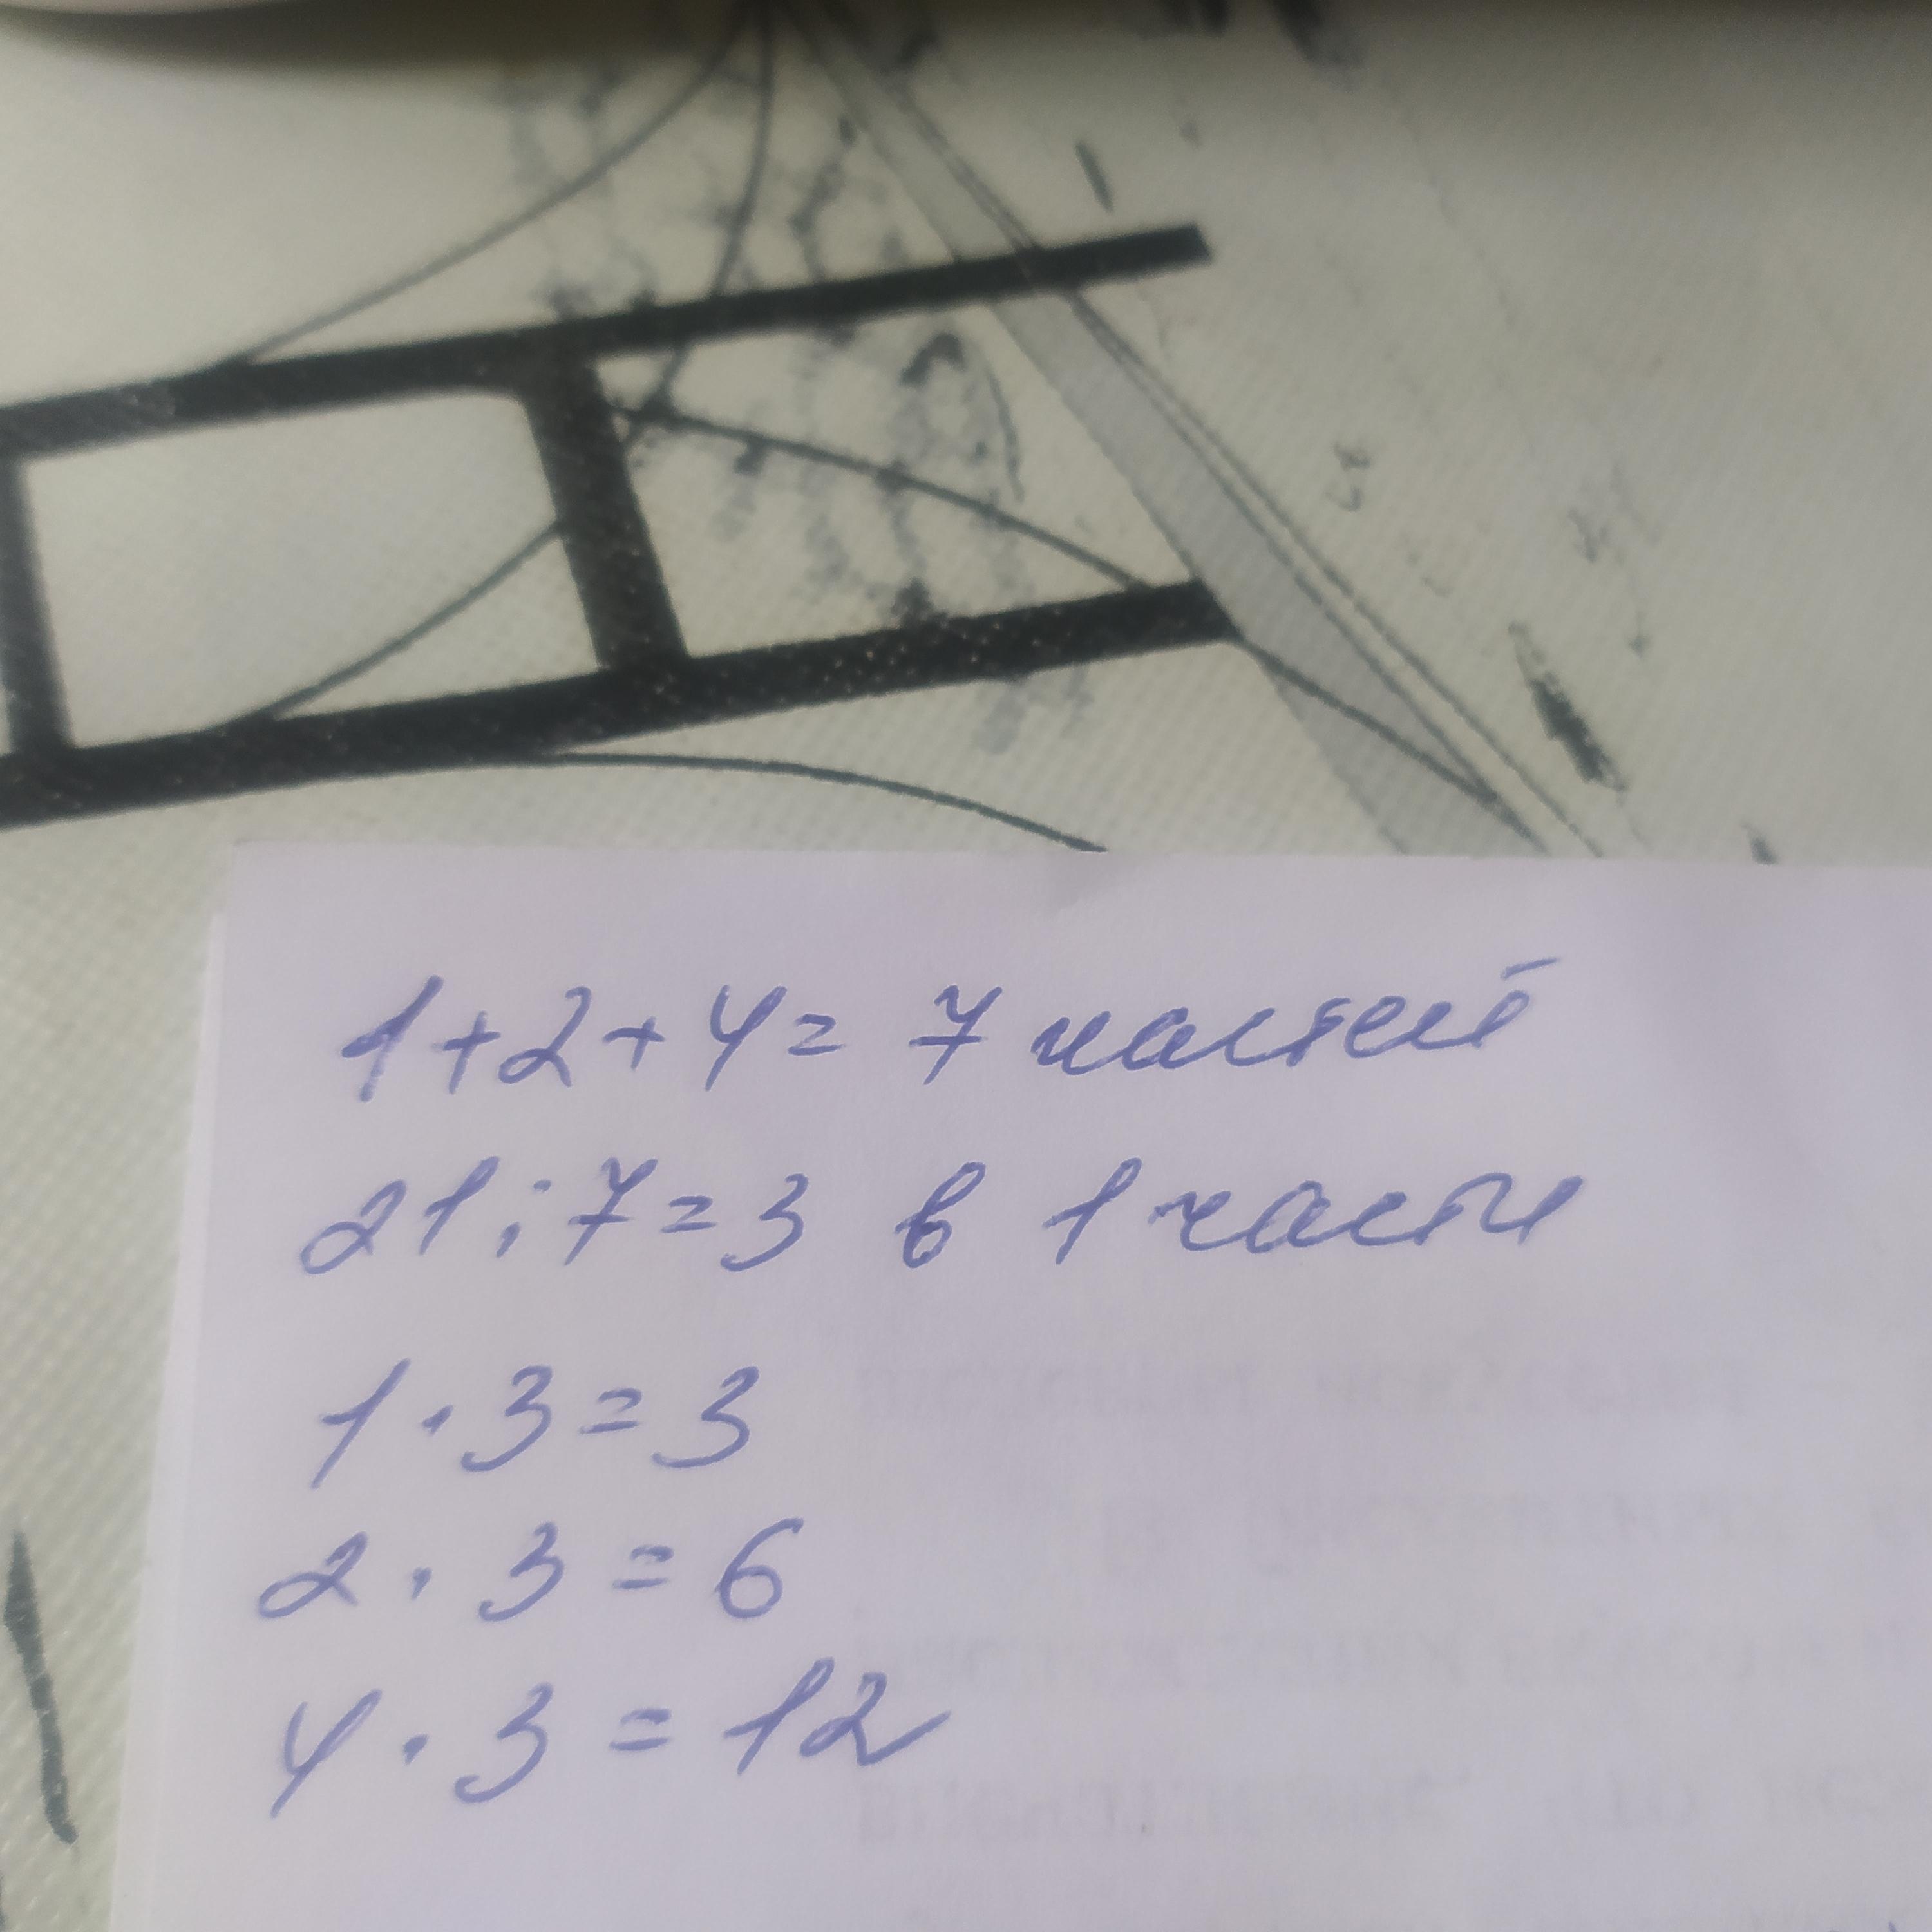 1+2+4= 7 частей
21:7=3 в 1 части
1·3=3
2·3=6
4·3=12